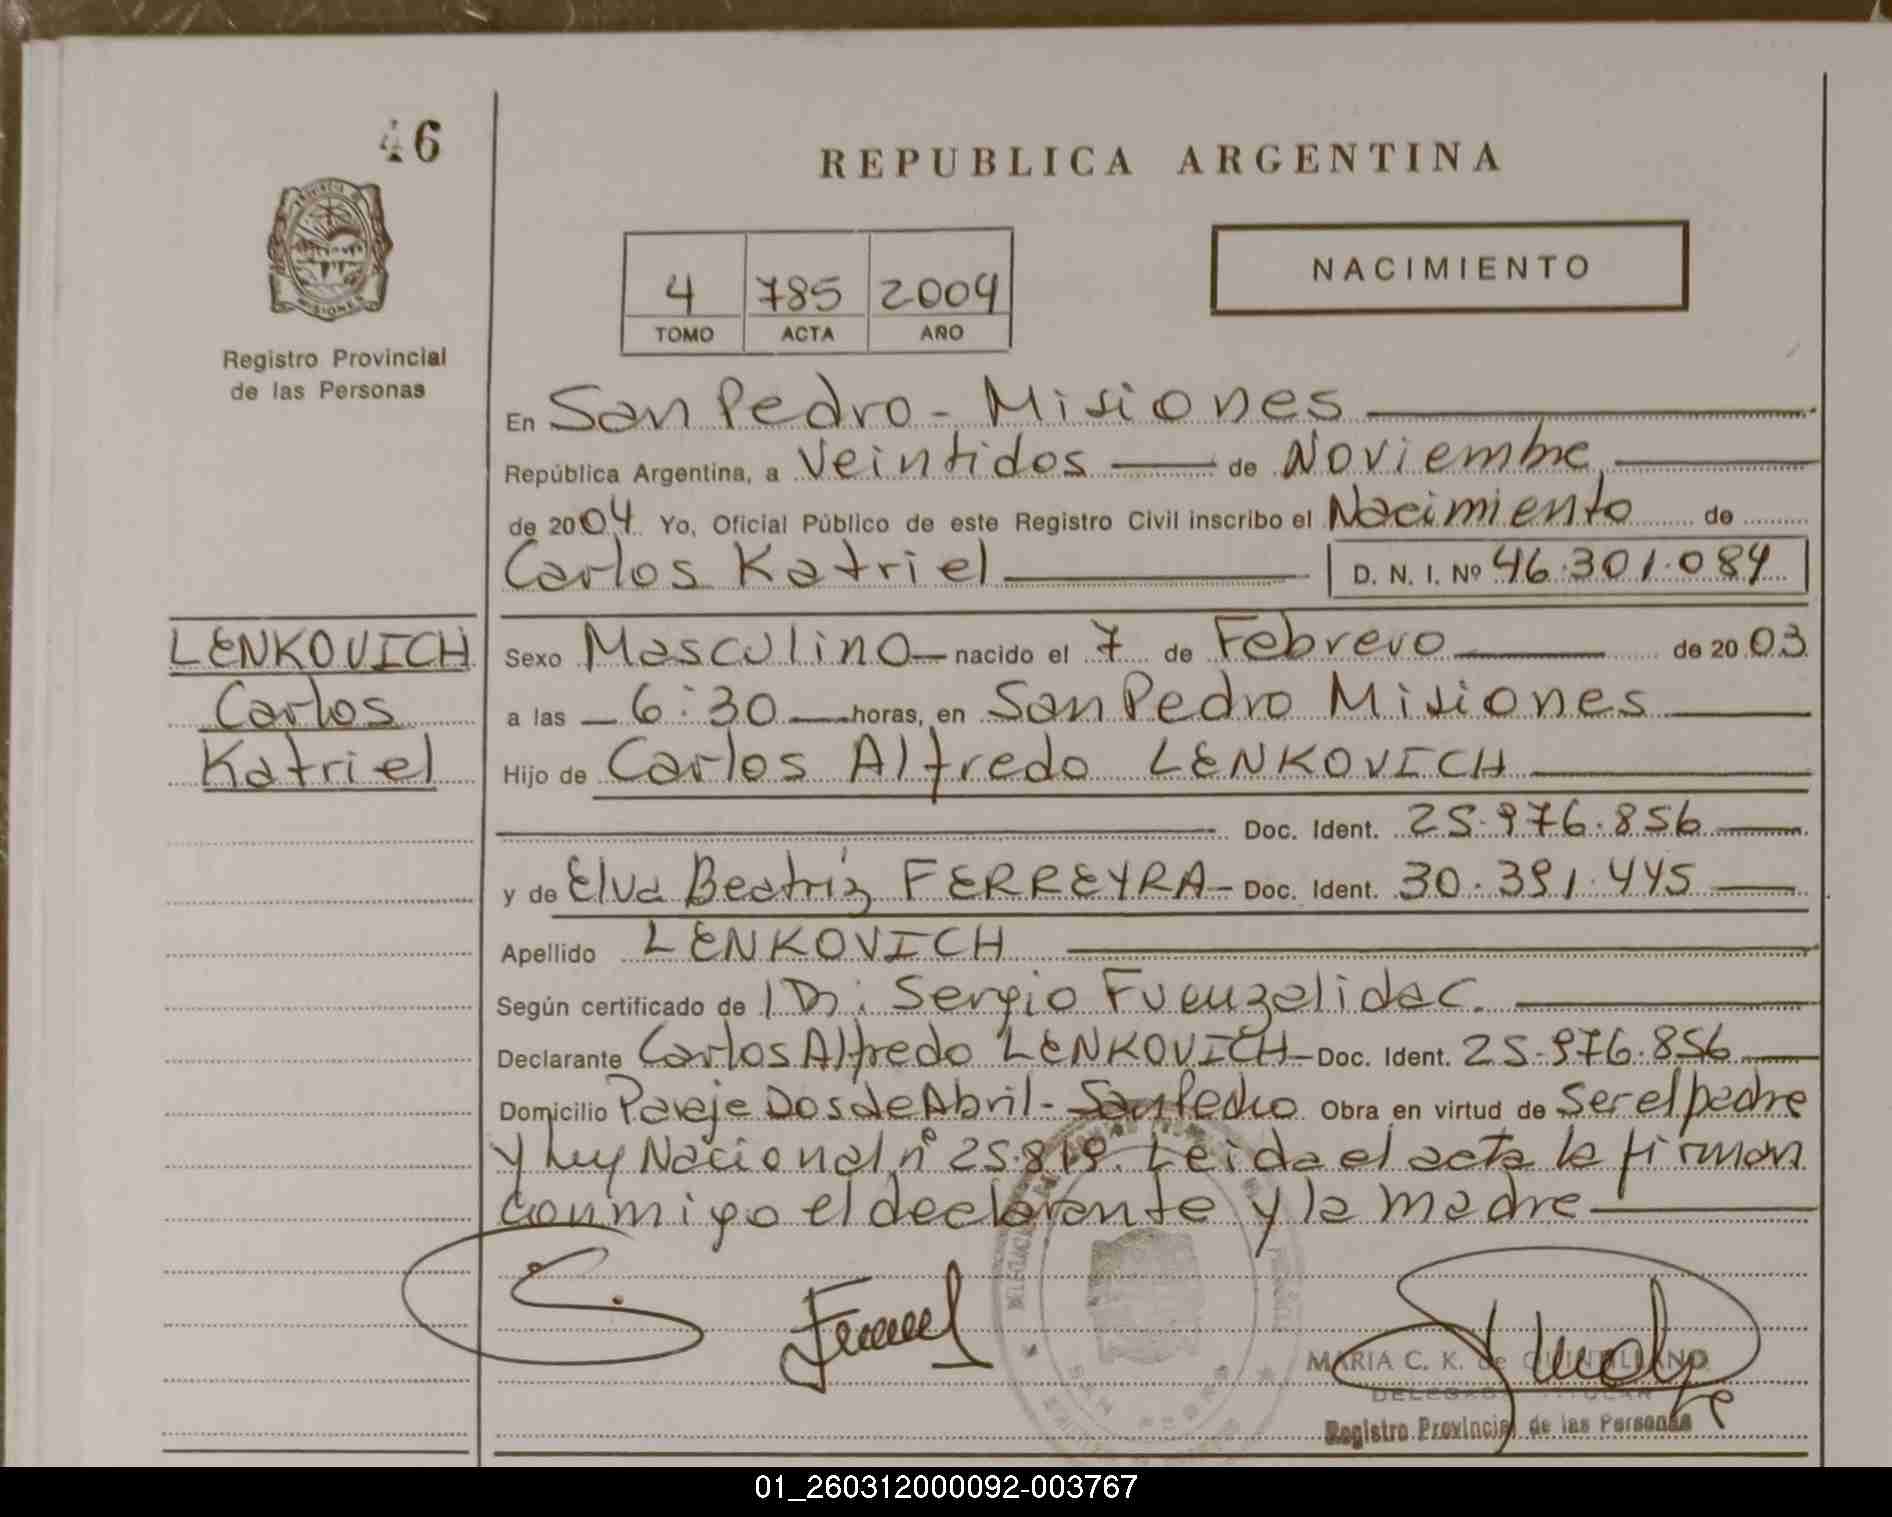 46
REPUBLICA ARGENTINA
NACIMIENTO
4 785 2004
TOMO ACTA AÑO
PROVINCIA DE
MISIONES
Registro Provincial
de las Personas
En San Pedro - Misiones
República Argentina, a Veintidos de Noviembre
de 2004 Yo, Oficial Público de este Registro Civil inscribo el Nacimiento de
Carlos Katriel D. N. I. Nº 46.301.084
LENKOVICH
Carlos
Katriel
Sexo Masculino nacido el 7 de Febrero de 2003
a las 6:30 horas, en San Pedro Misiones
Hijo de Carlos Alfredo LENKOVICH
Doc. Ident. 25.976.856
y de Elva Beatriz FERREYRA Doc. Ident. 30.391.445
Apellido LENKOVICH
Según certificado de Dr. Sergio Fuenzalida C.
Declarante Carlos Alfredo LENKOVICH Doc. Ident. 25.976.856
Domicilio Paraje Dos de Abril - San Pedro Obra en virtud de Ser el padre
y Ley Nacional nº 25.819. Leida el acta la firman
conmigo el declarante y la madre
MARIA C. K. de QUINTILIANO
Registro Provincial de las Personas
01_260312000092-003767